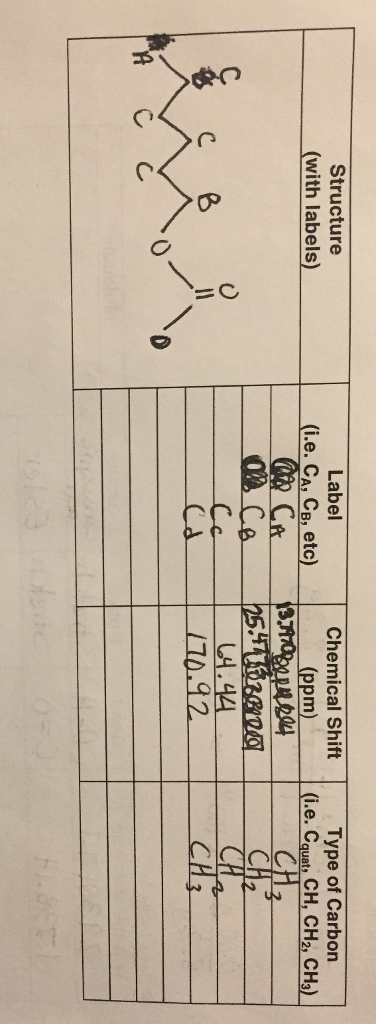 Structure
(with labels)
Label
(i.e. CA, CB, etc)
Chemical Shift
(ppm)
Type of Carbon
(i.e. Cquat, CH, CH2, CH3)
A
C
C
C
C
B
O
O
D
CA
CH3
CB
CH2
Cc
64.44
CH2
Cd
170.92
CH3